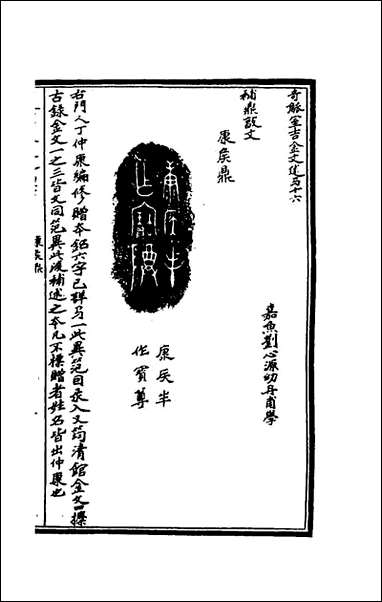 奇觚室吉金文述弓十六
嘉魚劉心源幼丹甫學
補鼎敦文
康矦鼎
康矦丰
作寶尊
右門人丁仲康編修贈本銘六字已詳弓一此異笵因彔入又筠清館金文攈
古錄金文一之三皆文同笵異此後補述之本凡不標贈者姓名皆出仲康也
康矦鼎